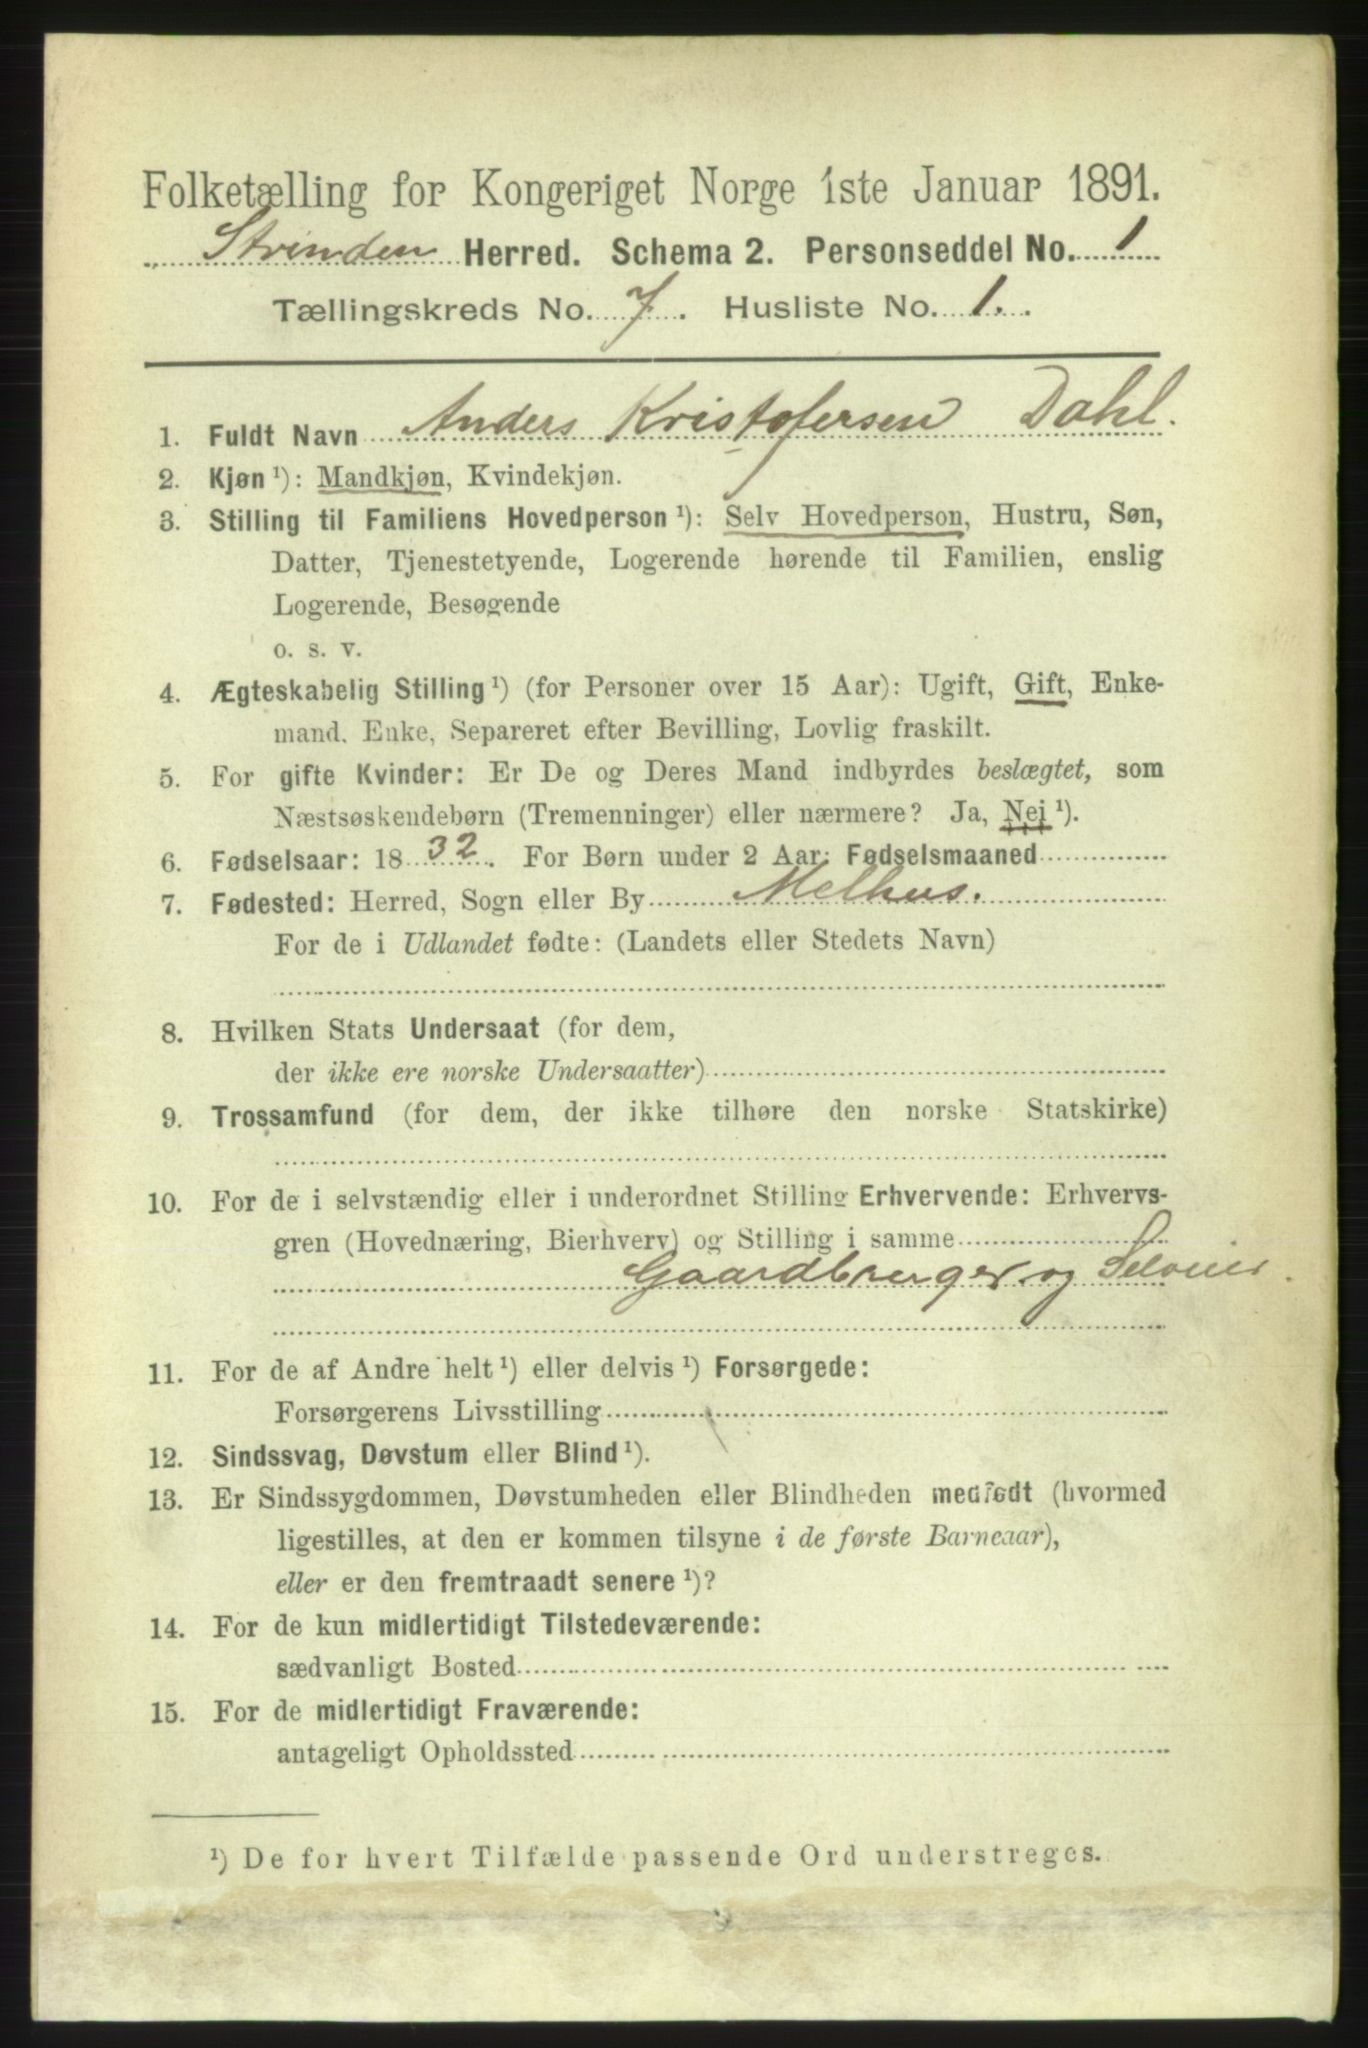 Folketælling for Kongeriget Norge 1ste Januar 1891.
Strinden Herred. Schema 2. Personseddel No. 1
Tællingskreds No. 7. Husliste No. 1.
1. Fuldt Navn Anders Kristofersen Dahl.
2. Kjøn¹): Mandkjøn, Kvindekjøn.
3. Stilling til Familiens Hovedperson¹): Selv Hovedperson, Hustru, Søn,
Datter, Tjenestetyende, Logerende hørende til Familien, enslig
Logerende, Besøgende
o. s. v.
4. Ægteskabelig Stilling¹) (for Personer over 15 Aar): Ugift, Gift, Enke-
mand, Enke, Separeret efter Bevilling, Lovlig fraskilt.
5. For gifte Kvinder: Er De og Deres Mand indbyrdes beslægtet, som
Næstsøskendebørn (Tremenninger) eller nærmere? Ja, Nei¹).
6. Fødselsaar: 1832. For Børn under 2 Aar: Fødselsmaaned
7. Fødested: Herred, Sogn eller By Melhus.
For de i Udlandet fødte: (Landets eller Stedets Navn)
8. Hvilken Stats Undersaat (for dem,
der ikke ere norske Undersaatter)
9. Trossamfund (for dem, der ikke tilhøre den norske Statskirke)
10. For de i selvstændig eller i underordnet Stilling Erhvervende: Erhvervs-
gren (Hovednæring, Bierhverv) og Stilling i samme
Gaardbruger og Selveier.
11. For de af Andre helt¹) eller delvis¹) Forsørgede:
Forsørgerens Livsstilling
12. Sindssvag, Døvstum eller Blind¹).
13. Er Sindssygdommen, Døvstumheden eller Blindheden medfødt (hvormed
ligestilles, at den er kommen tilsyne i de første Barneaar),
eller er den fremtraadt senere¹)?
14. For de kun midlertidigt Tilstedeværende:
sædvanligt Bosted
15. For de midlertidigt Fraværende:
antageligt Opholdssted
¹) De for hvert Tilfælde passende Ord understreges.